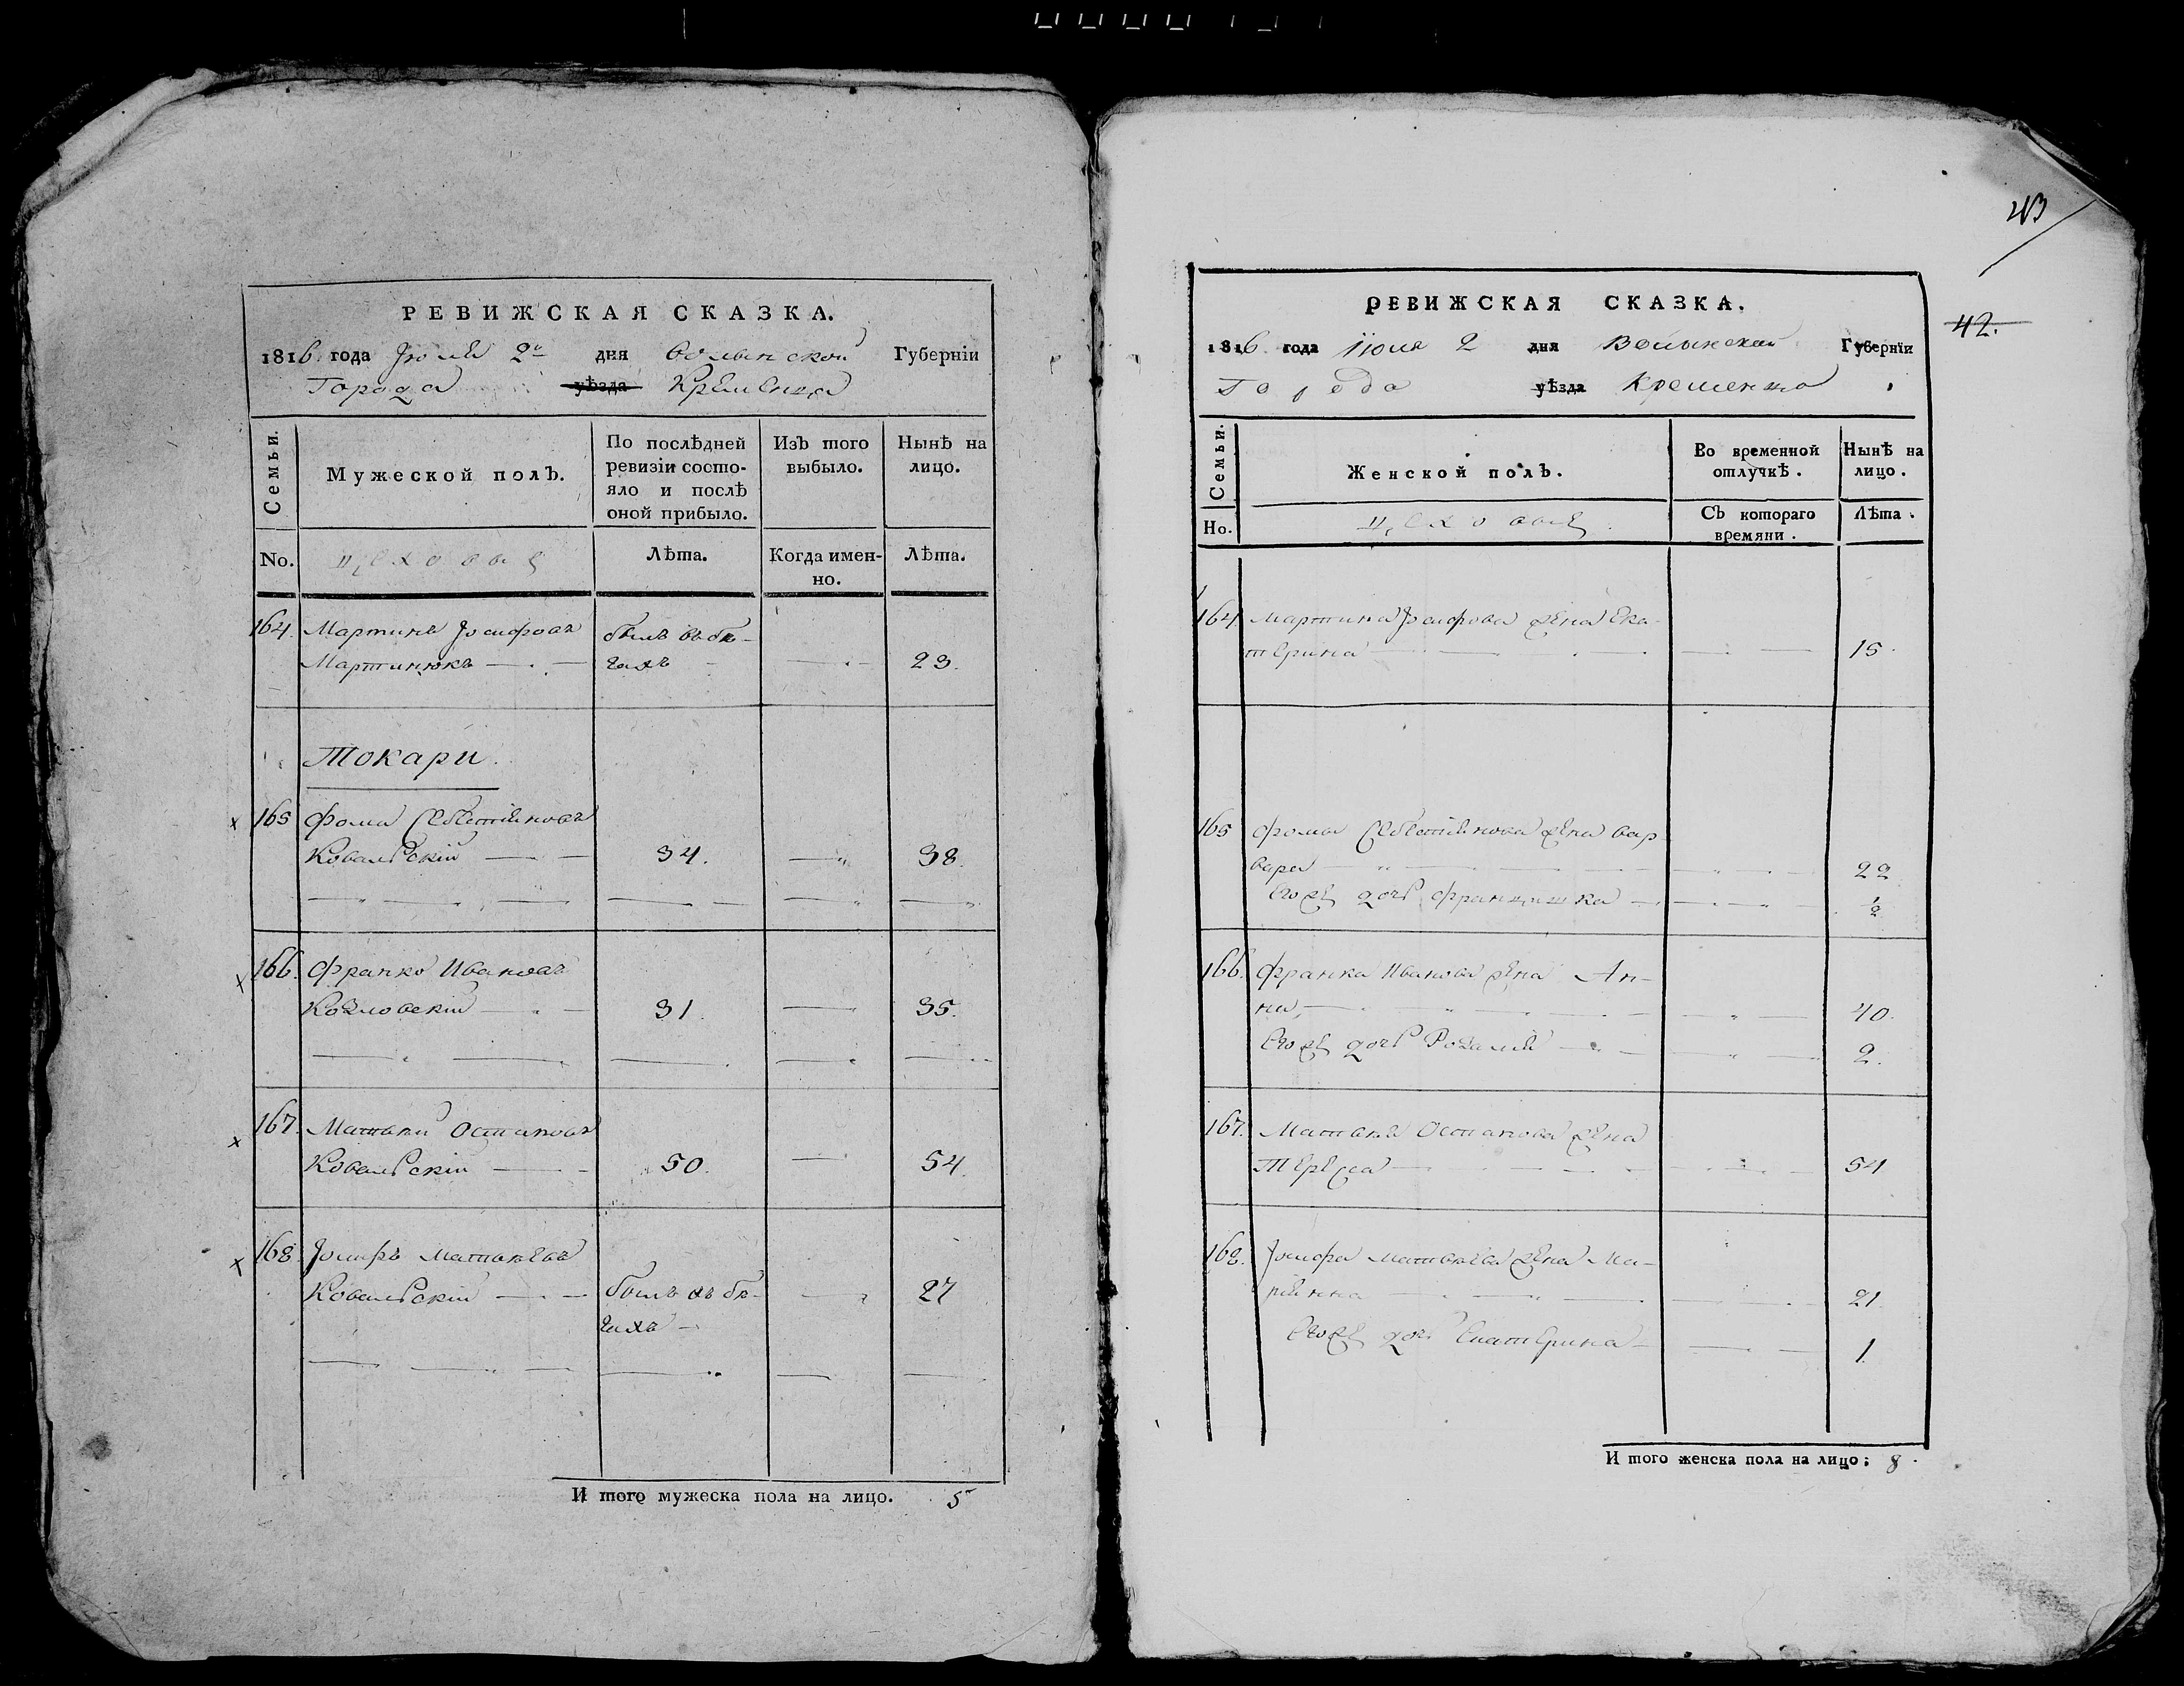 РЕВИЖСКАЯ СКАЗКА.
1816 года Іюля 2го дня Волынской Губерніи
Города уѣзда Кременца
Семьи.
Мужеской полъ.
По послѣдней
ревизіи состо-
яло и послѣ
оной прибыло.
Изъ того
выбыло.
Нынѣ на
лицо.
No.
цеховые
Лѣта.
Когда имен-
но.
Лѣта.
164. Мартинъ Іосифовъ былъ въ бѣ-
Мартинюкъ гахъ 23.
Токари.
165 Фома Себестіяновъ
Ковальскій 34. 38.
166. Франко Ивановъ
Козловскій 31. 35.
167. Матвѣй Остаповъ
Ковальскій 50. 54.
168. Іосифъ Матвѣевъ
Ковальскій былъ въ бѣ- 27
гахъ
И того мужеска пола на лицо. 5
43
42.
РЕВИЖСКАЯ СКАЗКА.
1816 года Іюля 2 дня Волынской Губерніи
Города уѣзда Кременца
Семьи.
Женской полъ.
Во временной
отлучкѣ.
Нынѣ на
лицо.
Но.
цеховые
Съ котораго
времяни.
Лѣта.
164 Мартина Іосифова жена Ека-
терина 15.
165 Фомы Себестіянова жена Вар-
вара 22
Егоже дочь Францишка 1/2
166. Франка Иванова жена Ан-
на, 40.
Егоже дочь Розалія 2.
167. Матвѣя Остапова жена
Тереса 54
168. Іосифа Матвѣева жена Ма-
ріянна 21.
Егоже дочь Екатерина 1.
И того женска пола на лицо: 8.